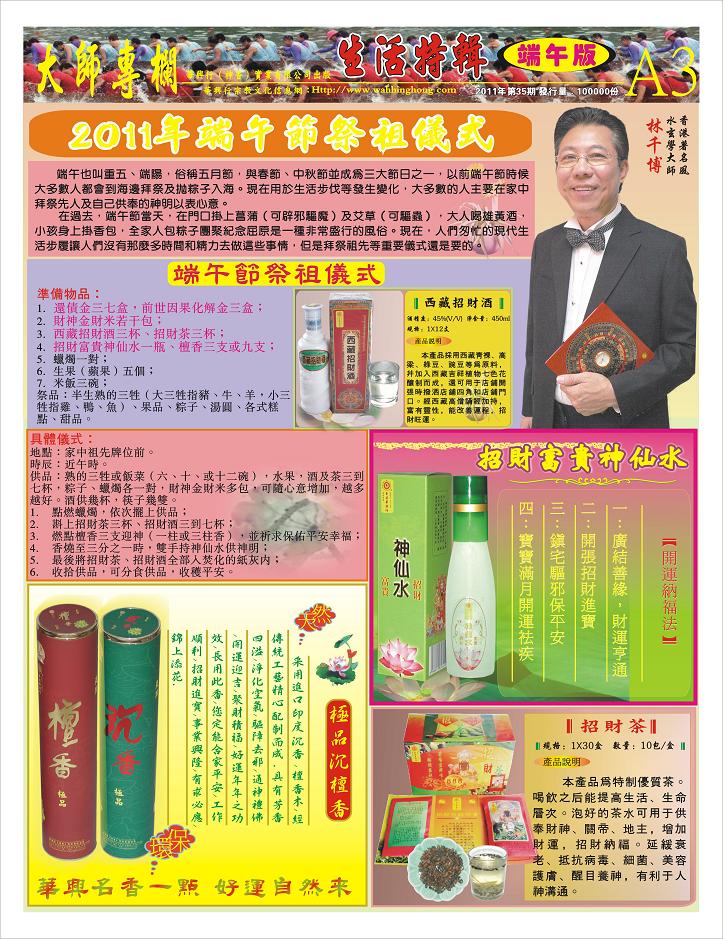 大師專欄
華興行（神香）實業有限公司出版
華興行宗教文化信息網：Http://www.wahhinghong.com
生活特輯
端午版
2011年第35期 發行量：100000份
A3
2011年端午節祭祖儀式
香港著名風
水玄學大師
林千博
端午也叫重五、端陽，俗稱五月節，與春節、中秋節並成爲三大節日之一，以前端午節時候
大多數人都會到海邊拜祭及拋粽子入海。現在用於生活步伐等發生變化，大多數的人主要在家中
拜祭先人及自己供奉的神明以表心意。
在過去，端午節當天，在門口掛上菖蒲（可辟邪驅魔）及艾草（可驅蟲），大人喝雄黃酒，
小孩身上掛香包，全家人包粽子團聚紀念屈原是一種非常盛行的風俗。現在，人們匆忙的現代生
活步履讓人們沒有那麼多時間和精力去做這些事情，但是拜祭祖先等重要儀式還是要的。
端午節祭祖儀式
準備物品：
1. 還債金三七盒，前世因果化解金三盒；
2. 財神金財米若干包；
3. 西藏招財酒三杯、招財茶三杯；
4. 招財富貴神仙水一瓶、檀香三支或九支；
5. 蠟燭一對；
6. 生果（蘋果）五個；
7. 米飯三碗；
祭品：半生熟的三牲（大三牲指豬、牛、羊，小三
牲指雞、鴨、魚）、果品、粽子、湯圓、各式糕
點、甜品。
西藏招財酒
西藏招財酒
酒精度：45%(V/V) 凈含量：450ml
規格：1X12支
產品說明
本產品採用西藏青稞、高
梁、綠豆、豌豆等爲原料，
幷加入西藏吉祥植物七色花
釀制而成，還可用于店舖開
張時撥洒店舖四角和店舖門
口。經西藏高僧誦經加持，
富有靈性，能改善運程，招
財旺運。
具體儀式：
地點：家中祖先牌位前。
時辰：近午時。
供品：熟的三牲或飯菜（六、十、或十二碗），水果，酒及茶三到
七杯，粽子、蠟燭各一對，財神金財米多包，可隨心意增加，越多
越好。酒供幾杯，筷子幾雙。
1. 點燃蠟燭，依次擺上供品；
2. 斟上招財茶三杯、招財酒三到七杯；
3. 燃點檀香三支迎神（一柱或三柱香），並祈求保佑平安幸福；
4. 香燒至三分之一時，雙手持神仙水供神明；
5. 最後將招財茶、招財酒全部人焚化的紙灰内；
6. 收拾供品，可分食供品，收穫平安。
招財富貴神仙水
神仙水
招財
富貴
【開運納福法】
一：廣結善緣，財運亨通
二：開張招財進寶
三：鎮宅驅邪保平安
四：寶寶滿月開運祛疾
檀香
極品
沉香
極品
天然
環保
極品沉檀香
采用進口印度沉香、檀香木，經
傳統工藝精心配制而成，具有芳香
四溢，淨化空氣，驅障去邪，通神禮佛
，開運迎吉，聚財積福，好運年年之功
效，長用此香，您定能合家平安，工作
順利，招財進寶，事業興隆，有求必應，
錦上添花。
華興名香一點 好運自然來
招財茶
規格：1X30盒 數量：10包/盒
產品說明
本產品爲特制優質茶。
喝飲之后能提高生活、生命
層次。泡好的茶水可用于供
奉財神、關帝、地主，增加
財運，招財納福。延緩衰
老、抵抗病毒、細菌、美容
護膚、醒目養神，有利于人
神溝通。